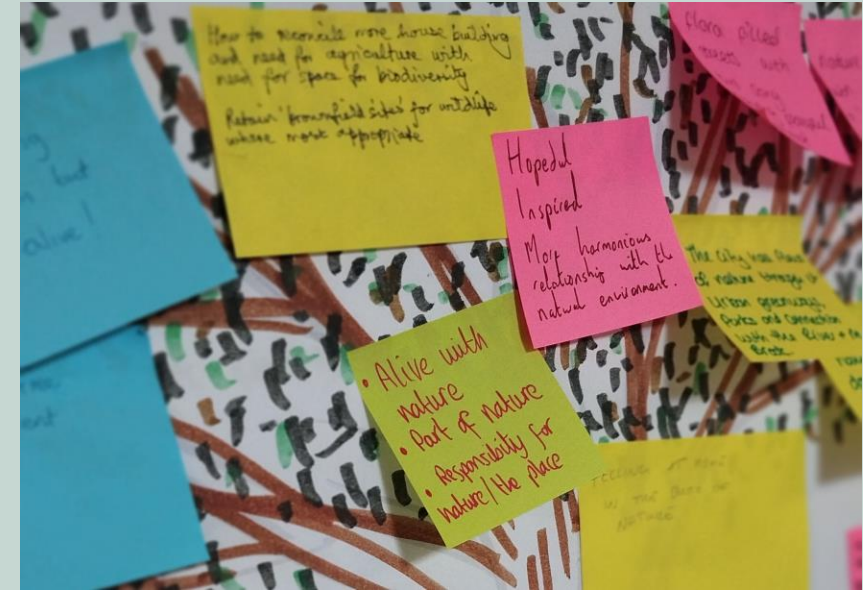 How to reconcile more house building
and need for agriculture with
need for space for biodiversity
Retain 'brownfield sites' for wildlife
where most appropriate
Flora
with
alive!
but
Hopeful
Inspired
More harmonious
relationship with the
natural environment.
The City has
of nature through it
Urban greenways,
Parks and connection
with the River
• Alive with
nature
• Part of nature
• Responsibility for
nature/the place
AT HOME
IN THE BODY OF
NATURE